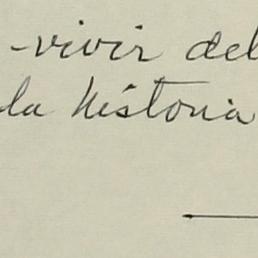 -vivir del
la historia